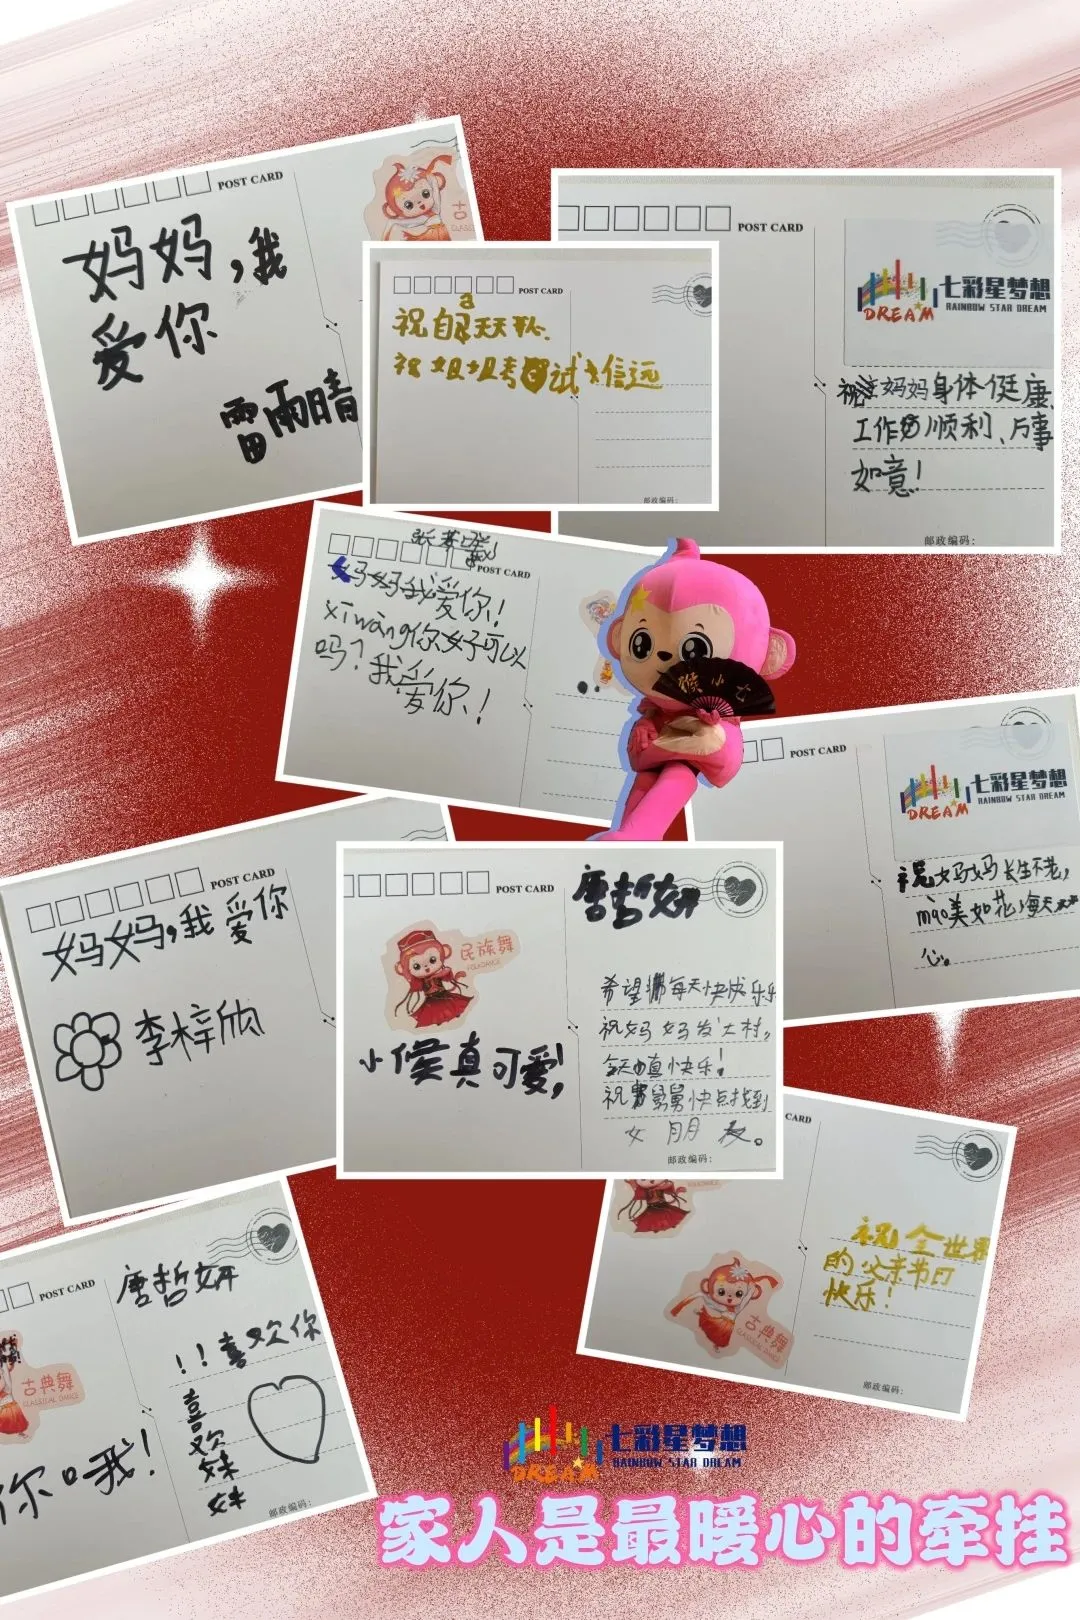 POST CARD
妈妈,我
爱你
雷雨晴
POST CARD
祝自己天天开心.
a
祝姐姐考试
邮政编码:
POST CARD
七彩星梦想
RAINBOW STAR DREAM
DREAM
祝妈妈身体健康
工作顺利、万事
如意!
邮政编码:
POST CARD
妈妈我爱你!
xīwàng你好可以
吗?我爱你!
猴小七
POST CARD
七彩星梦想
RAINBOW STAR DREAM
DREAM
祝妈妈长生不老,
mào美如花,每天
心。
POST CARD
妈妈,我爱你
李梓欣
POST CARD
唐哲妍
民族舞
FOLKDANCE
小候真可爱!
希望 每天快快乐乐
祝妈妈发大村。
今天 真快乐!
祝 舅舅快点找到
女朋友。
邮政编码:
CARD
祝全世界
的父亲节日
快乐!
古典舞
CLASSICAL DANCE
邮政编码:
POST CARD
唐哲妍
!!喜欢你
喜欢妹妹
古典舞
CLASSICAL DANCE
你 哦!
邮政编码:
七彩星梦想
RAINBOW STAR DREAM
DREAM
家人是最暖心的牵挂